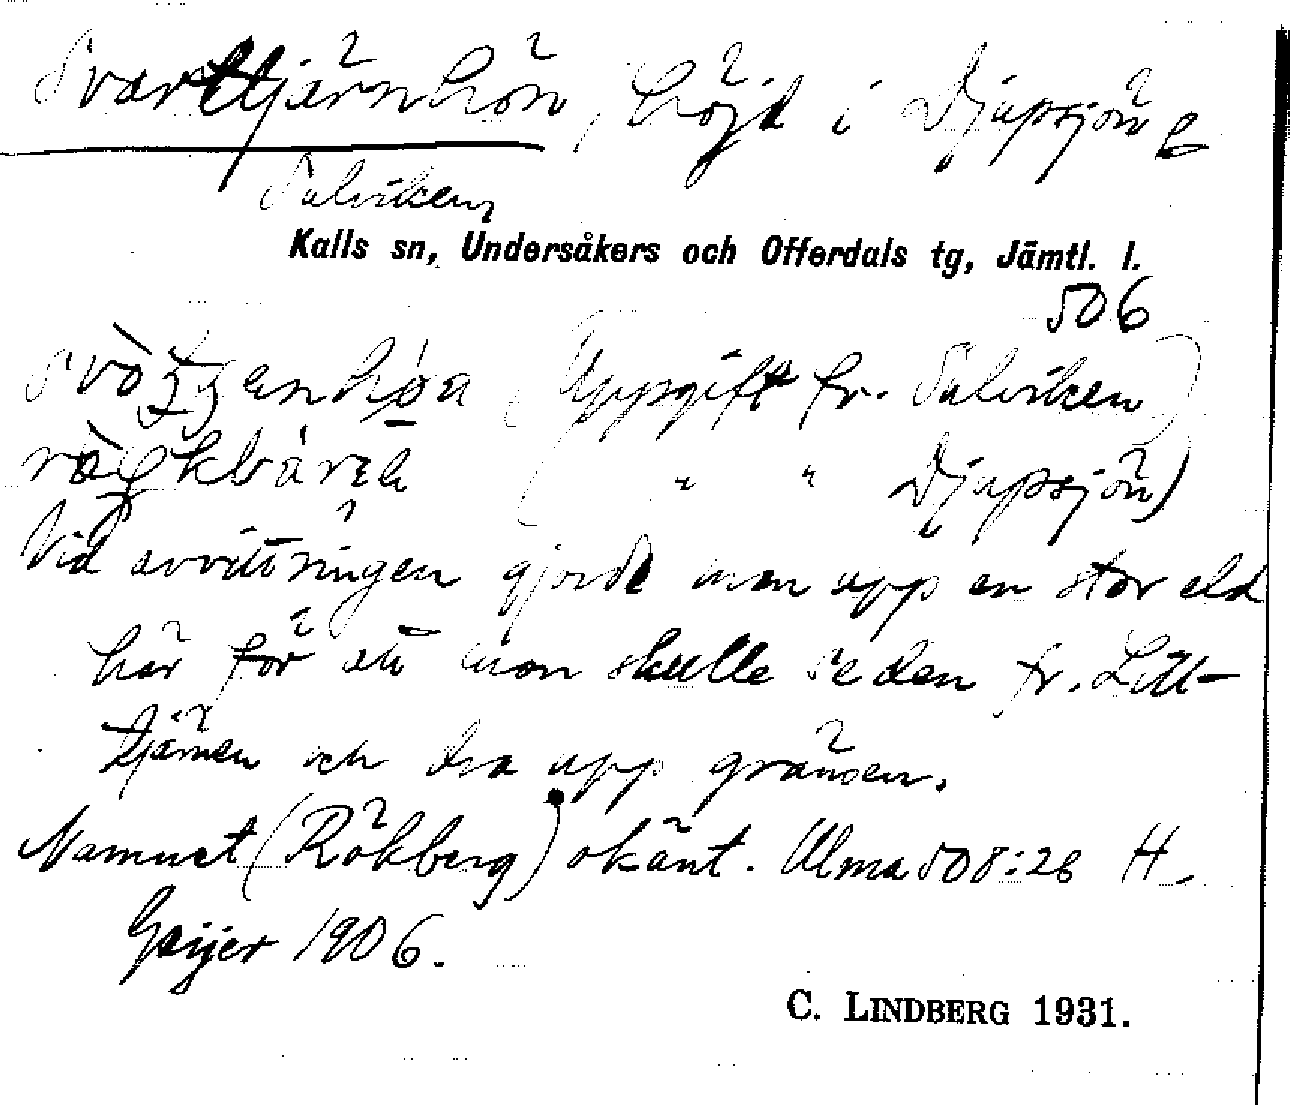 Svarttjärnhön, höjd i Djupsjön o
Sulviken,
Kalls sn, Undersåkers och Offerdals tg, Jämtl. l.
506
(Uppgift fr. Sulviken)
( " " Djupsjön)
Vid avvittringen gjorde man upp en stor eld
här för att man skulle se den fr. Litt-
tjärnen och dra upp gränsen.
Namnet (Rökberg) okänt. Ulma 508:26 H.
Geijer 1906.
C. LINDBERG 1931.